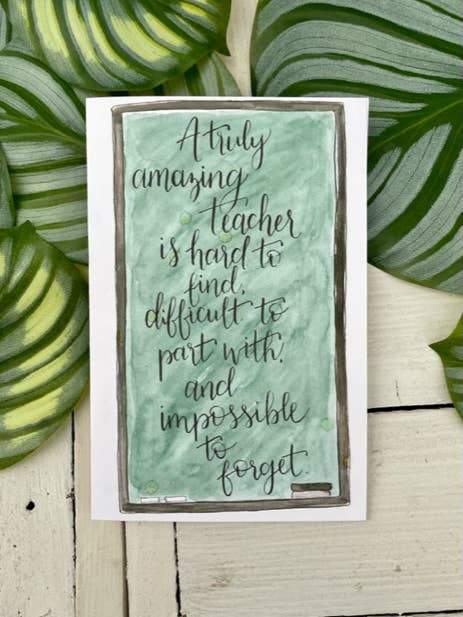 A truly
amazing
teacher
is hard to
find,
difficult to
part with,
and
impossible
to
forget.